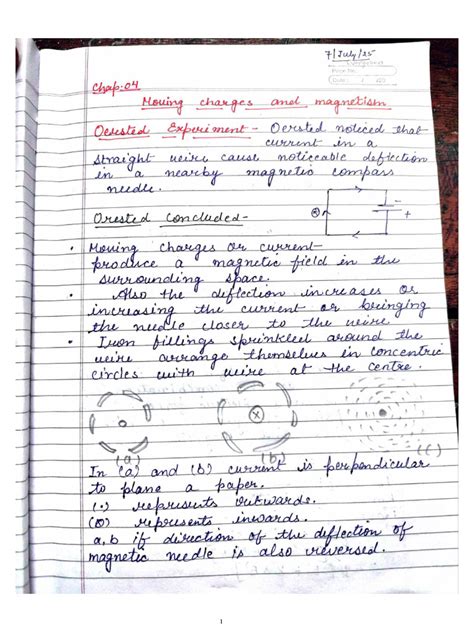 7/July/25
Page No.
Date
Chap:04
Moving charges and magnetism
Oersted Experiment - Oersted noticed that
current in a
straight weire cause noticeable deflection
in a nearby magnetic compass
needle.
Orested Concluded-
+
• Moving charges or current
produce a magnetic field in the
surrounding space.
• Also the deflection increases or
increasing the current or bringing
the needle closer to the weire.
• Iron fillings sprinkled around the
weire arrange themselves in concentric
circles with weire at the centre.
(a) (b) (c)
In (a) and (b) current is perpendicular
to plane a paper.
(.) represents outwards.
(⊗) represents inwards.
a, b if direction of the deflection of
magnetic needle is also reversed.
1